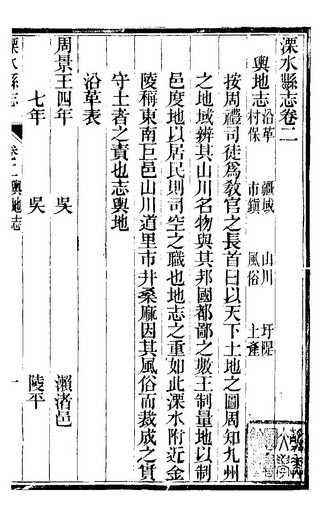 溧水縣志卷二
輿地志 沿革 疆域 山川 圩隄
村保 市鎮 風俗 土產
按周禮司徒爲敎官之長首曰以天下土地之圖周知九州
之地域辨其山川名物與其邦國都鄙之數王制量地以制
邑度地以居民則司空之職也地志之重如此溧水附近金
陵稱東南巨邑山川道里市井桑麻因其風俗而裁成之實
守土者之責也志輿地
沿革表
周景王四年 吳 瀨渚邑
七年 吳 陵平
溧水縣志 卷二 輿地志 一